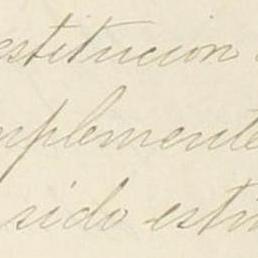 estitucion
mplemente
sido esti